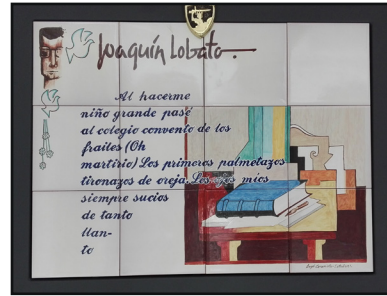 Joaquín Lobato
Al hacerme
niño grande pasé
al colegio convento de los
frailes (Oh
martirio) Los primeros palmetazos
tironazos de oreja. Los ojos míos
siempre sucios
de tanto
llan-
to